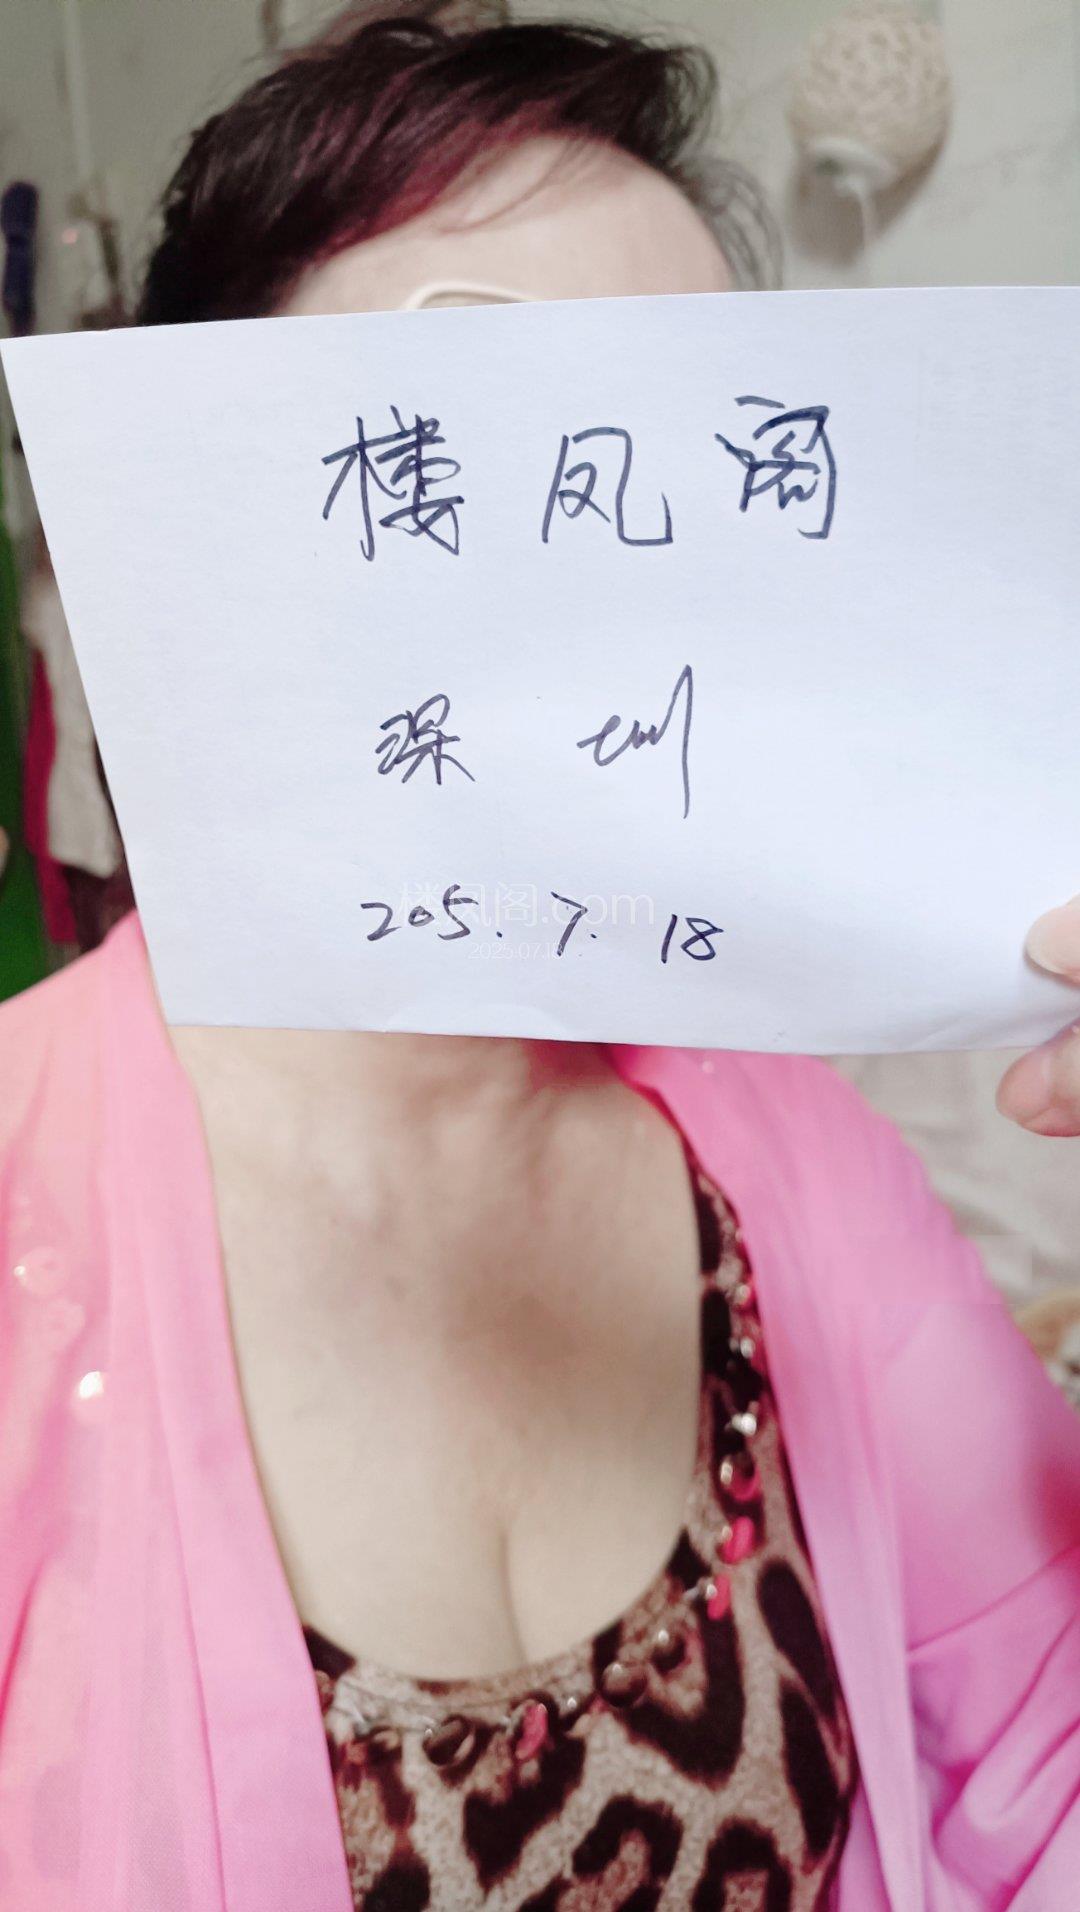 楼凤阁
深圳
205.7.18
楼凤阁.com
2025.07.18